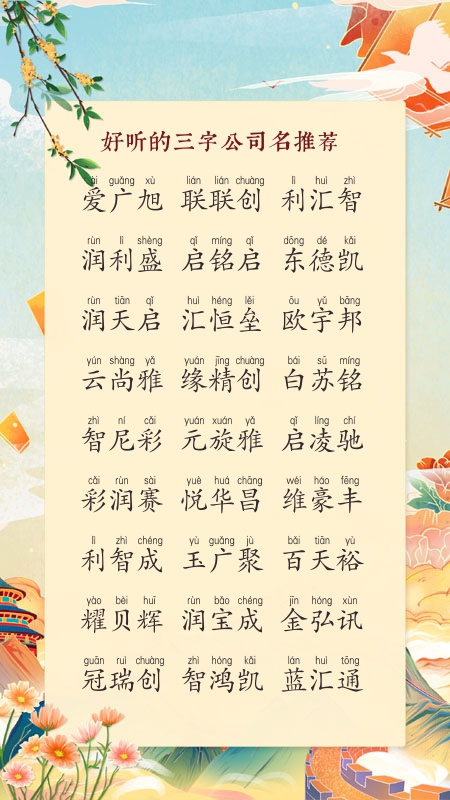 好听的三字公司名推荐
ài guǎng xù lián lián chuàng lì huì zhì
爱广旭 联联创 利汇智
rùn lì shèng qǐ míng qǐ dōng dé kǎi
润利盛 启铭启 东德凯
rùn tiān qǐ huì héng lěi ōu yǔ bāng
润天启 汇恒垒 欧宇邦
yún shàng yǎ yuán jīng chuàng bái sū míng
云尚雅 缘精创 白苏铭
zhì ní cǎi yuán xuán yǎ qǐ líng chí
智尼彩 元旋雅 启凌驰
cǎi rùn sài yuè huá chāng wéi háo fēng
彩润赛 悦华昌 维豪丰
lì zhì chéng yù guǎng jù bǎi tiān yù
利智成 玉广聚 百天裕
yào bèi huī rùn bǎo chéng jīn hóng xùn
耀贝辉 润宝成 金弘讯
guān ruì chuàng zhì hóng kǎi lán huì tōng
冠瑞创 智鸿凯 蓝汇通